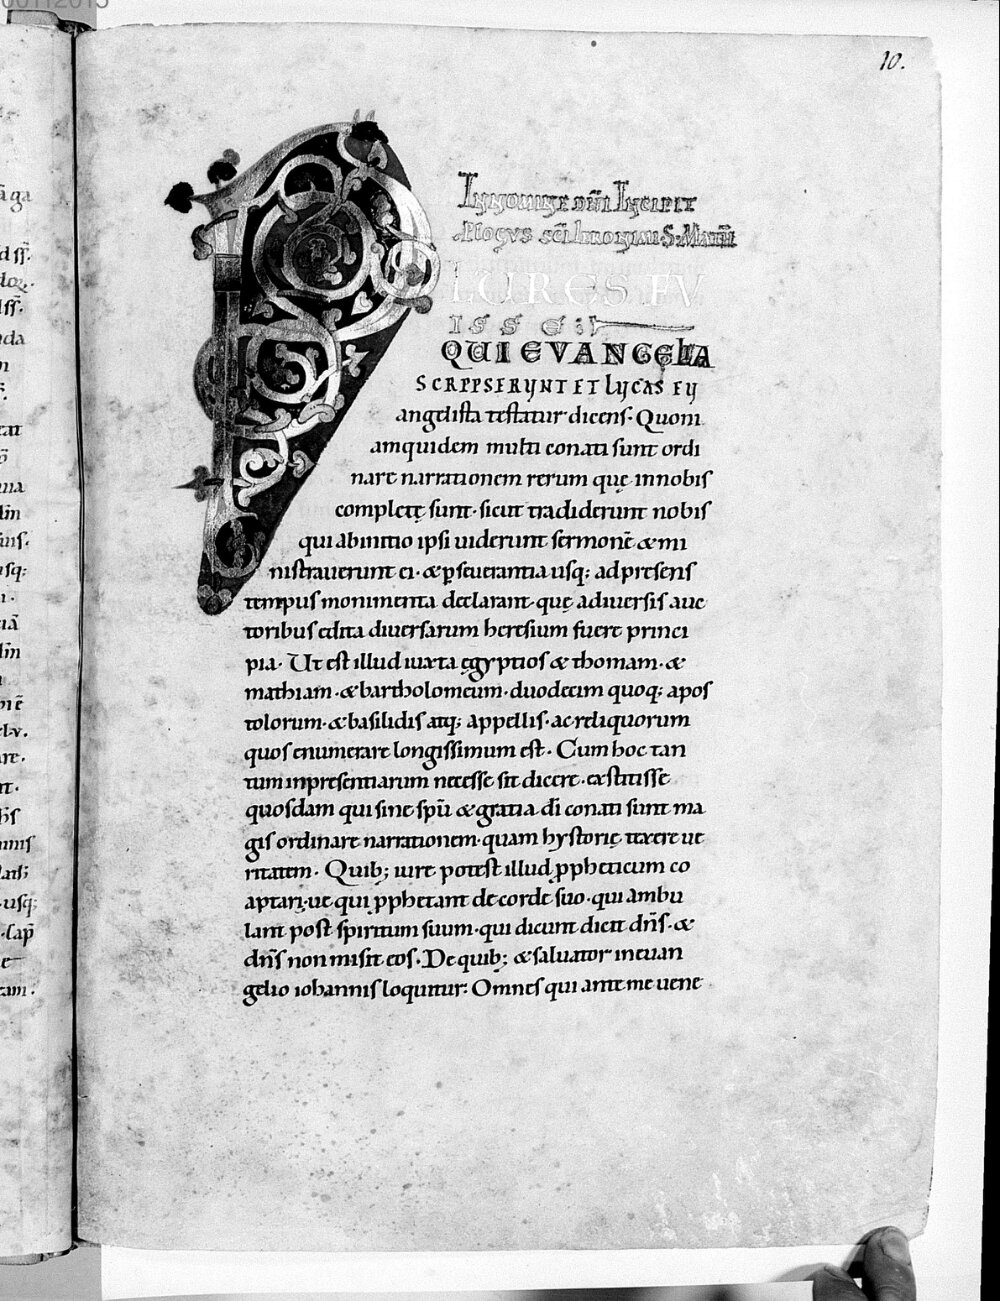 10.
IN NOMINE DNI INCIPIT
PLOGVS SCI IERONIMI S. MATHM
PLURES FU
ISSE:
QUI EVANGELIA
SCRIPSERUNT ET LUCAS EU
angelista testatur dicens. Quoni
am quidem multi conati sunt ordi
nare narrationem rerum quę innobis
completę sunt. sicut tradiderunt nobis
qui abinitio ipsi uiderunt sermonē & mi
nistrauerunt ei. & pseuerantia usq; ad presens
tempus monimenta declarant. quę adiuersis auc
toribus edita diuersarum heresium fuere princi
pia. Ut est illud iuxta ęgyptios & thomam. &
mathiam. & bartholomeum. duodecim quoq; apos
tolorum. & basilidis atq; appellis. ac reliquorum
quos enumerare longissimum est. Cum hoc tan
tum inpresentiarum necesse sit dicere. extitisse
quosdam qui sine spū & gratia dī conati sunt ma
gis ordinare narrationem. quam hystorię texere ue
ritatem. Quib; iure potest illud ppheticum co
aptari. ue qui pphetant de corde suo. qui ambu
lant post spiritum suum. qui dicunt dicit dn̄s. &
dn̄s non misit eos. De quib; & saluator in euan
gelio iohannis loquitur: Omnes qui ante me uene